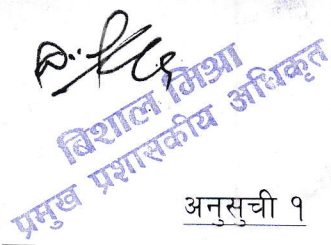 बिशाल मिश्रा
प्रमुख प्रशासकीय अधिकृत
अनुसुची १